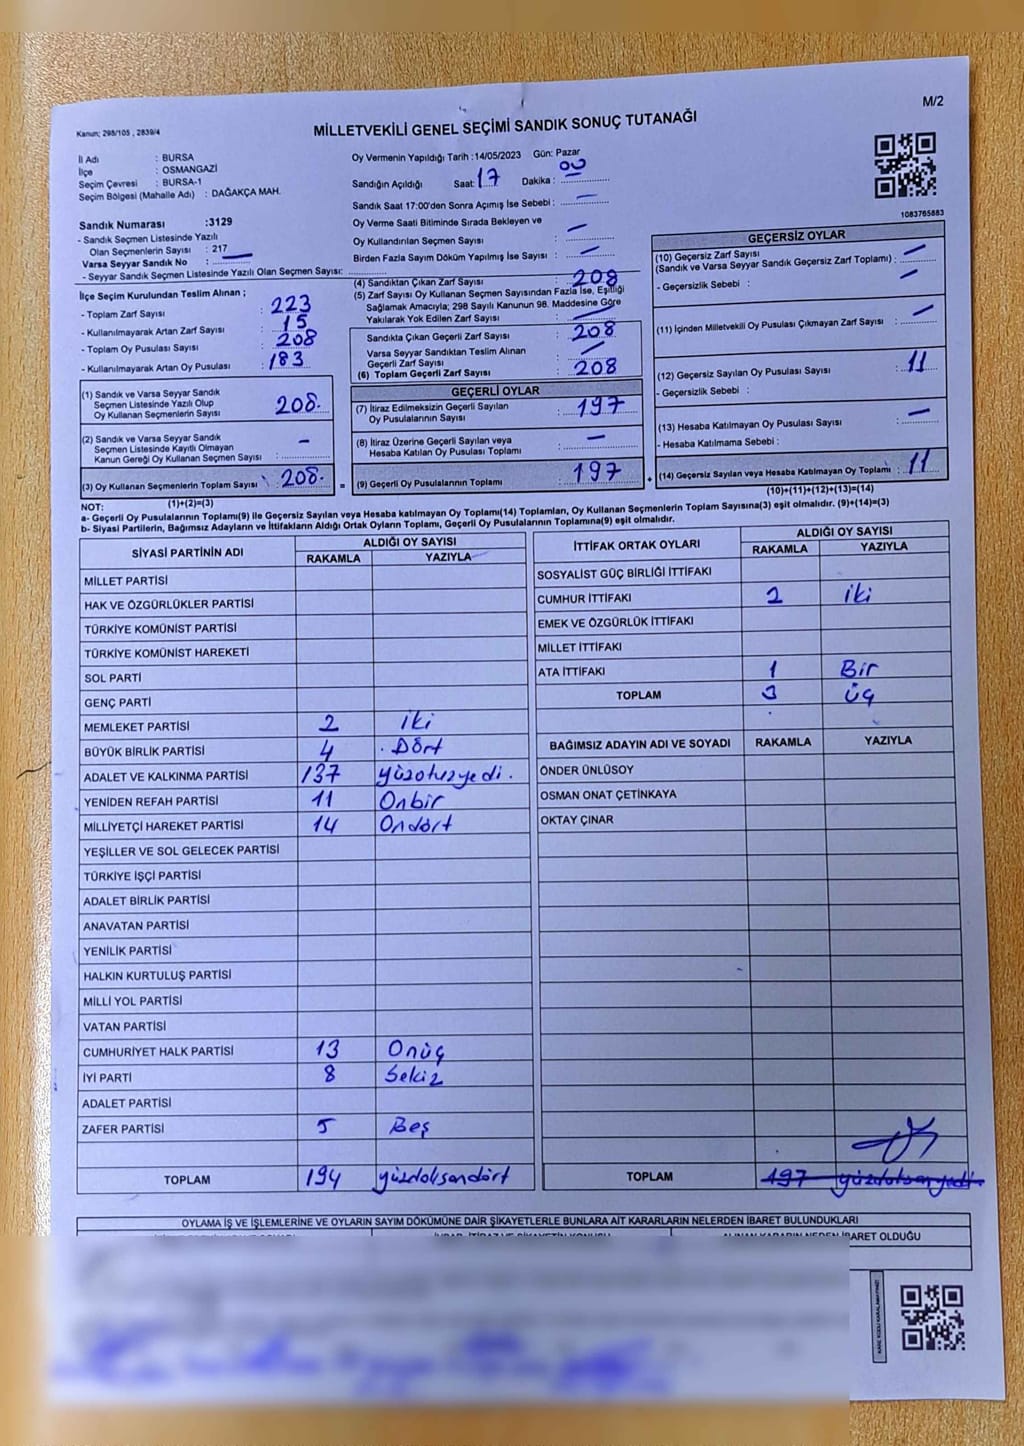 M/2
Kanun; 298/105 , 2839/4
MİLLETVEKİLİ GENEL SEÇİMİ SANDIK SONUÇ TUTANAĞI
İl Adı : BURSA
İlçe : OSMANGAZİ
Seçim Çevresi : BURSA-1
Seçim Bölgesi (Mahalle Adı) : DAĞAKÇA MAH.
Oy Vermenin Yapıldığı Tarih :14/05/2023 Gün: Pazar
Sandığın Açıldığı Saat: 17 Dakika : 00
Sandık Saat 17:00'den Sonra Açımış İse Sebebi : —
Oy Verme Saati Bitiminde Sırada Bekleyen ve
Oy Kullandırılan Seçmen Sayısı : —
Birden Fazla Sayım Döküm Yapılmış İse Sayısı : —
1083765883
Sandık Numarası :3129
- Sandık Seçmen Listesinde Yazılı
Olan Seçmenlerin Sayısı : 217
Varsa Seyyar Sandık No : —
- Seyyar Sandık Seçmen Listesinde Yazılı Olan Seçmen Sayısı:
İlçe Seçim Kurulundan Teslim Alınan ;
- Toplam Zarf Sayısı : 223
- Kullanılmayarak Artan Zarf Sayısı : 15
- Toplam Oy Pusulası Sayısı : 208
- Kullanılmayarak Artan Oy Pusulası : 183
(1) Sandık ve Varsa Seyyar Sandık
Seçmen Listesinde Yazılı Olup
Oy Kullanan Seçmenlerin Sayısı 208.
(2) Sandık ve Varsa Seyyar Sandık
Seçmen Listesinde Kayıtlı Olmayan
Kanun Gereği Oy Kullanan Seçmen Sayısı : —
(3) Oy Kullanan Seçmenlerin Toplam Sayısı : 208. =
(1)+(2)=(3)
(4) Sandıktan Çıkan Zarf Sayısı : 208
(5) Zarf Sayısı Oy Kullanan Seçmen Sayısından Fazla İse, Eşitliği
Sağlamak Amacıyla; 298 Sayılı Kanunun 98. Maddesine Göre
Yakılarak Yok Edilen Zarf Sayısı : —
Sandıkta Çıkan Geçerli Zarf Sayısı : 208
Varsa Seyyar Sandıktan Teslim Alınan
Geçerli Zarf Sayısı : —
(6) Toplam Geçerli Zarf Sayısı : 208
GEÇERLİ OYLAR
(7) İtiraz Edilmeksizin Geçerli Sayılan
Oy Pusulalarının Sayısı : 197
(8) İtiraz Üzerine Geçerli Sayılan veya
Hesaba Katılan Oy Pusulası Toplamı : —
(9) Geçerli Oy Pusulalarının Toplamı : 197 +
GEÇERSİZ OYLAR
(10) Geçersiz Zarf Sayısı
(Sandık ve Varsa Seyyar Sandık Geçersiz Zarf Toplamı) : —
- Geçersizlik Sebebi : —
(11) İçinden Milletvekili Oy Pusulası Çıkmayan Zarf Sayısı : —
(12) Geçersiz Sayılan Oy Pusulası Sayısı : 11
- Geçersizlik Sebebi :
(13) Hesaba Katılmayan Oy Pusulası Sayısı : —
- Hesaba Katılmama Sebebi :
(14) Geçersiz Sayılan veya Hesaba Katılmayan Oy Toplamı : 11
(10)+(11)+(12)+(13)=(14)
NOT:
a- Geçerli Oy Pusulalarının Toplamı(9) ile Geçersiz Sayılan veya Hesaba katılmayan Oy Toplamı(14) Toplamları, Oy Kullanan Seçmenlerin Toplam Sayısına(3) eşit olmalıdır. (9)+(14)=(3)
b- Siyasi Partilerin, Bağımsız Adayların ve İttifakların Aldığı Ortak Oyların Toplamı, Geçerli Oy Pusulalarının Toplamına(9) eşit olmalıdır.
SİYASİ PARTİNİN ADI ALDIĞI OY SAYISI
RAKAMLA YAZIYLA
MİLLET PARTİSİ
HAK VE ÖZGÜRLÜKLER PARTİSİ
TÜRKİYE KOMÜNİST PARTİSİ
TÜRKİYE KOMÜNİST HAREKETİ
SOL PARTİ
GENÇ PARTİ
MEMLEKET PARTİSİ 2 iki
BÜYÜK BİRLİK PARTİSİ 4 Dört
ADALET VE KALKINMA PARTİSİ 137 yüzotuzyedi.
YENİDEN REFAH PARTİSİ 11 Onbir
MİLLİYETÇİ HAREKET PARTİSİ 14 Ondört
YEŞİLLER VE SOL GELECEK PARTİSİ
TÜRKİYE İŞÇİ PARTİSİ
ADALET BİRLİK PARTİSİ
ANAVATAN PARTİSİ
YENİLİK PARTİSİ
HALKIN KURTULUŞ PARTİSİ
MİLLİ YOL PARTİSİ
VATAN PARTİSİ
CUMHURİYET HALK PARTİSİ 13 Onüç
İYİ PARTİ 8 Sekiz
ADALET PARTİSİ
ZAFER PARTİSİ 5 Beş
TOPLAM 194 yüzdoksandört
İTTİFAK ORTAK OYLARI ALDIĞI OY SAYISI
RAKAMLA YAZIYLA
SOSYALİST GÜÇ BİRLİĞİ İTTİFAKI
CUMHUR İTTİFAKI 2 iki
EMEK VE ÖZGÜRLÜK İTTİFAKI
MİLLET İTTİFAKI
ATA İTTİFAKI 1 Bir
TOPLAM 3 üç
BAĞIMSIZ ADAYIN ADI VE SOYADI RAKAMLA YAZIYLA
ÖNDER ÜNLÜSOY
OSMAN ONAT ÇETİNKAYA
OKTAY ÇINAR
TOPLAM 197 yüzdoksanyedi.
OYLAMA İŞ VE İŞLEMLERİNE VE OYLARIN SAYIM DÖKÜMÜNE DAİR ŞİKAYETLERLE BUNLARA AİT KARARLARIN NELERDEN İBARET BULUNDUKLARI
ALINAN KARARIN NEDEN İBARET OLDUĞU
KARE KODU KARALAMAYINIZ!